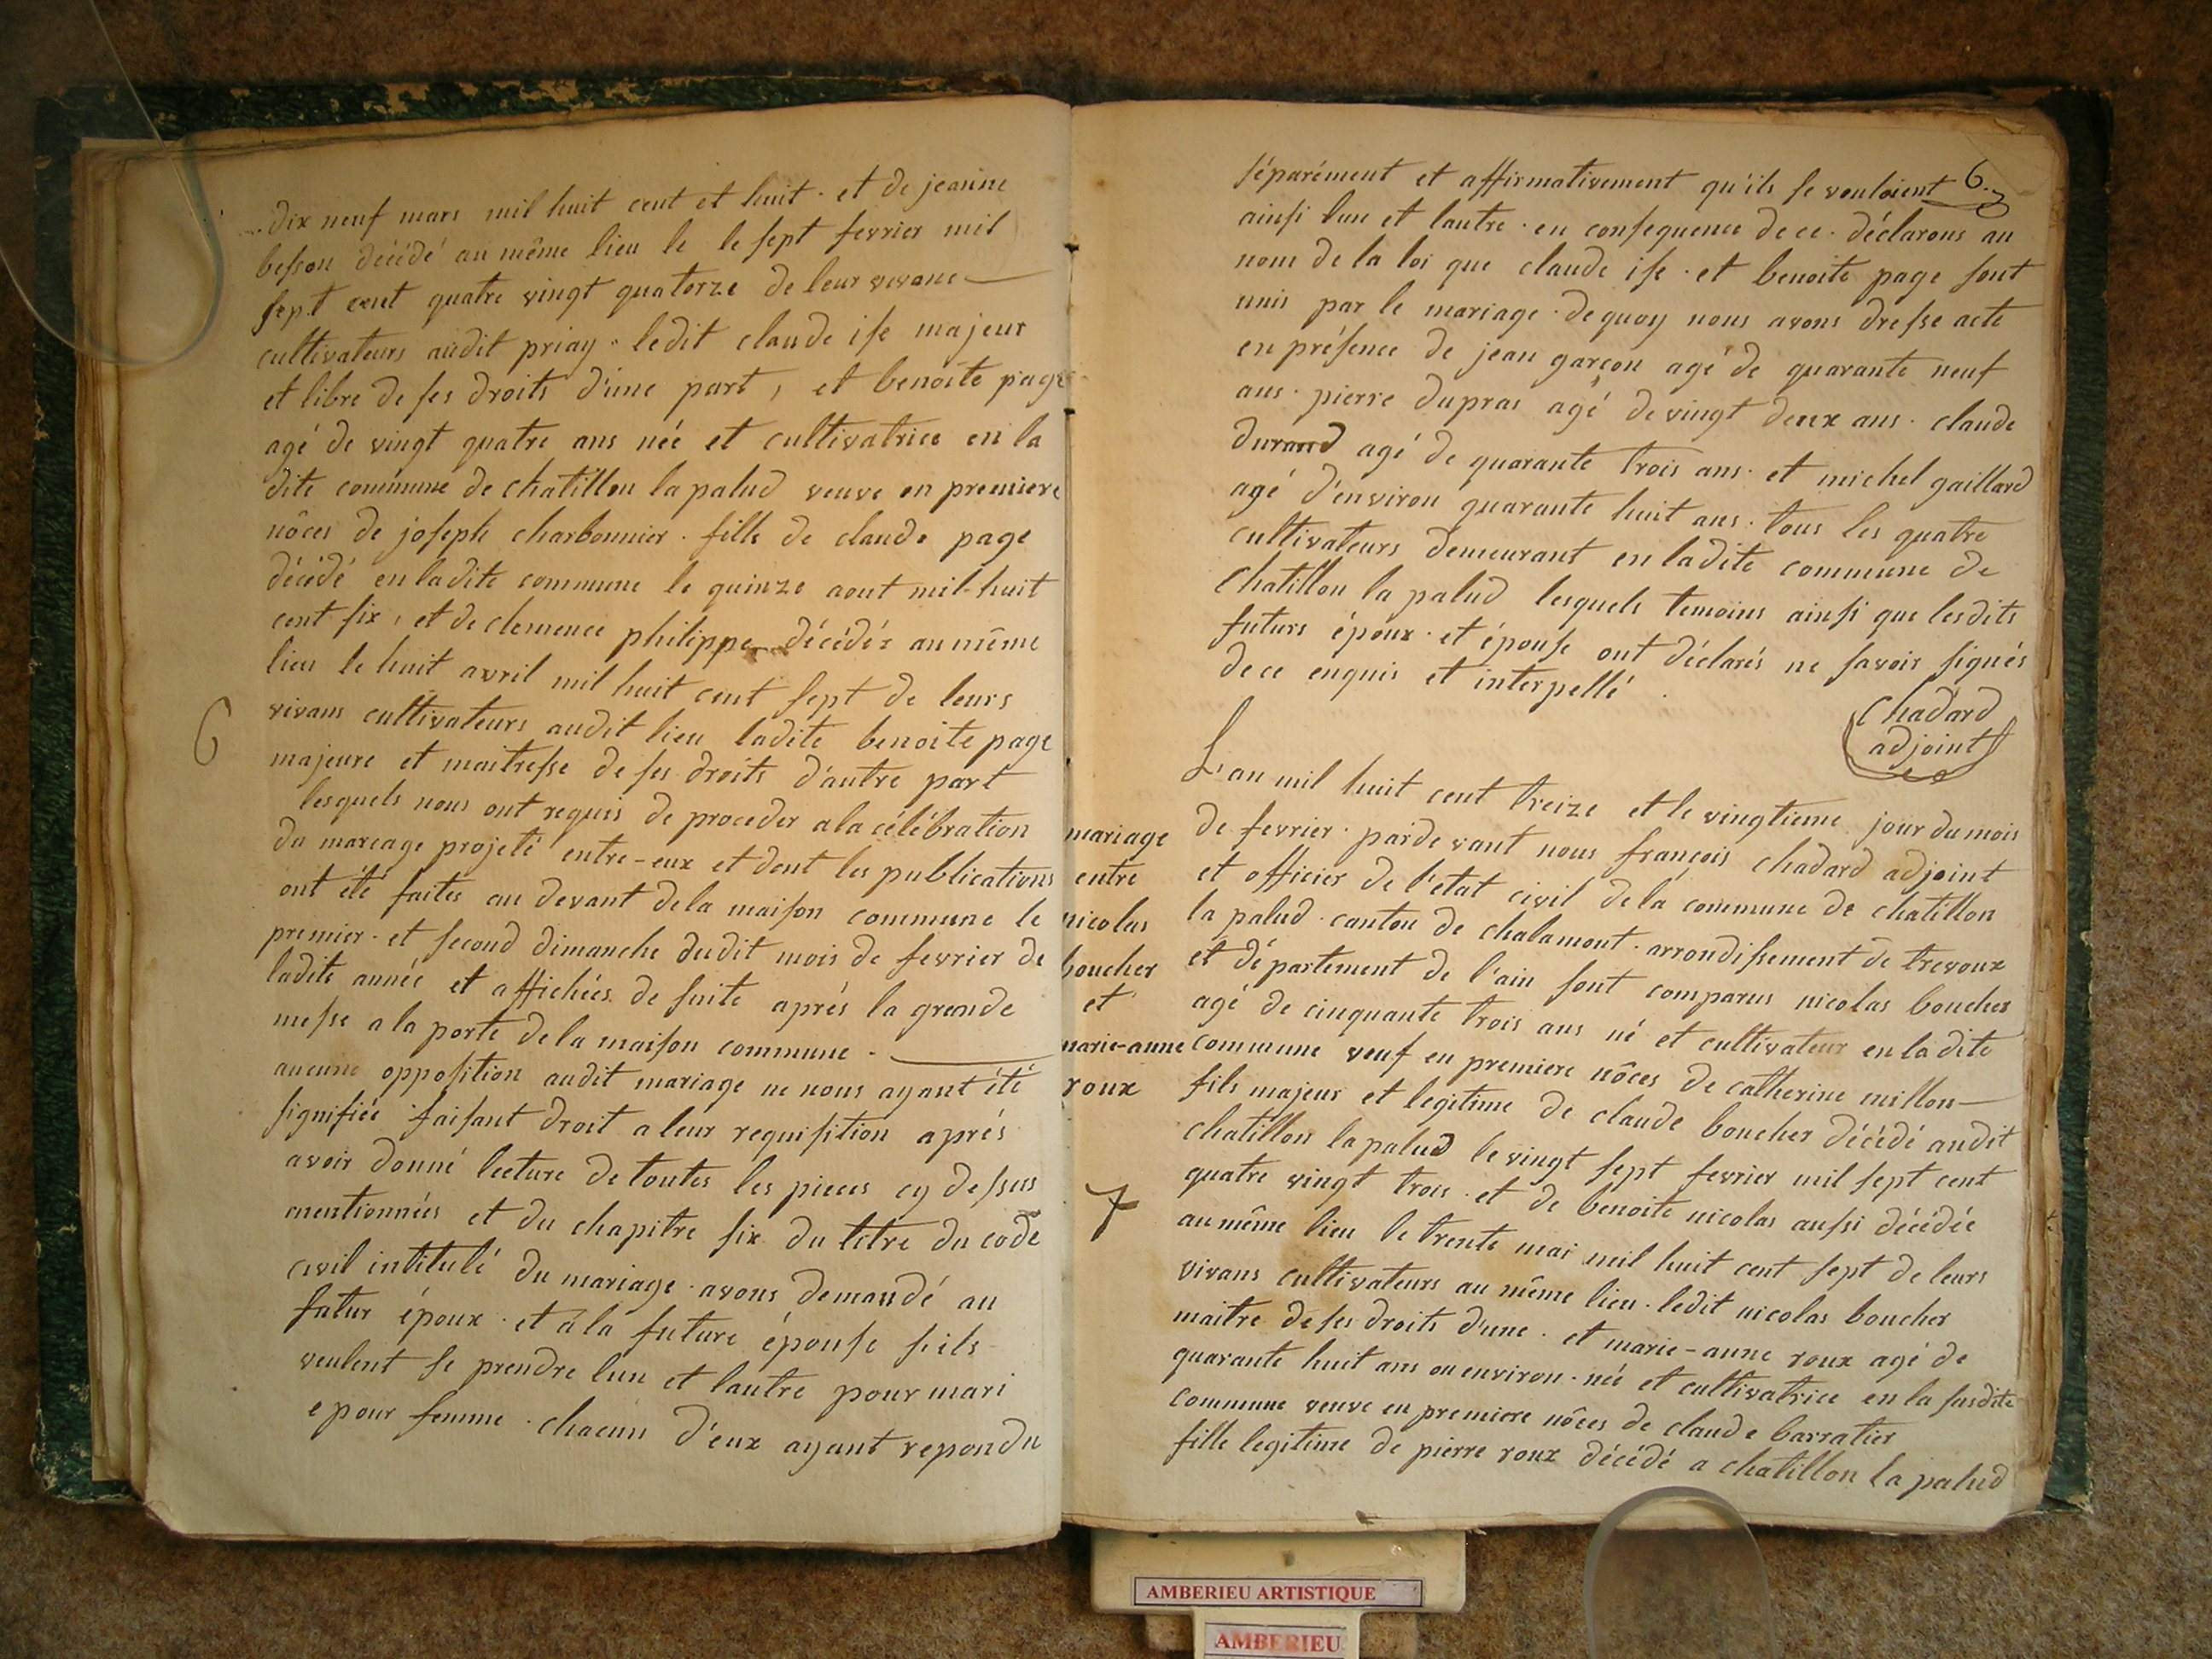 dix neuf mars mil huit cent et huit. et de jeanne
besson décédé au même lieu le le sept fevrier mil
sept cent quatre vingt quatorze de leur vivans
cultivateurs audit priay. ledit claude ise majeur
et libre de ses droits d'une part, et benoite page
agé de vingt quatre ans née et cultivatrice en la
dite commune de chatillon la palud veuve en premiere
nôces de joseph charbonnier. fille de claude page
décédé en ladite commune le quinze aout mil-huit
cent six, et de clemence philippe décédée au même
lieu le huit avril mil huit cent sept de leurs
vivans cultivateurs audit lieu ladite benoite page
majeure et maitresse de ses droits d'autre part
lesquels nous ont requis de proceder a la célébration
du mareage projeté entre-eux et dont les publications
ont été faites au devant de la maison commune le
premier. et second dimanche dudit mois de fevrier de
ladite année et affichées de suite aprés la grande
messe a la porte de la maison commune.
aucune opposition audit mariage ne nous ayant été
signifiée faisant droit a leur requisition aprés
avoir donné lecture de toutes les pieces cy dessus
mentionnées et du chapitre six du titre du code
civil intitulé du mariage. avons demandé au
futur époux. et a la future épouse s'ils
veulent se prendre lun et lautre pour mari
e pour femme. chacun d'eux ayant repondu
6
6.
séparément et affirmativement qu'ils se vouloient
ainsi lun et lautre. en consequence de ce. déclarons au
nom de la loi que claude ise. et benoite page sont
unis par le mariage. de quoy nous avons dresse acte
en présence de jean garçon agé de quarante neuf
ans. pierre dupras agé de vingt deux ans. claude
durand agé de quarante trois ans. et michel gaillard
agé d'environ quarante huit ans. tous les quatre
cultivateurs demeurant en ladite commune de
chatillon la palud lesquels temoins ainsi que lesdits
futurs époux. et épouse ont déclarés ne savoir signés
de ce enquis et interpellé.
Chadard
adjoint
L'an mil huit cent treize et le vingtieme jour du mois
de fevrier. pardevant nous françois chadard adjoint
et officier de l'etat civil de la commune de chatillon
la palud. canton de chalamont. arrondissement de trevoux
et département de l'ain sont comparus nicolas boucher
agé de cinquante trois ans né et cultivateur en ladite
commune veuf en premiere nôces de catherine millon
fils majeur et legitime de claude boucher décédé audit
chatillon la palud le vingt sept fevrier mil sept cent
quatre vingt trois. et de benoite nicolas aussi décédée
au même lieu le trente mai mil huit cent sept de leurs
vivans cultivateurs au même lieu. ledit nicolas boucher
maitre de ses droits dune. et marie-anne roux agé de
quarante huit ans ou environ. née et cultivatrice en la susdite
commune veuve en premiere nôces de claude barratier
fille legitime de pierre roux décédé a chatillon la palud
mariage
entre
nicolas
boucher
et
marie-anne
roux
7
AMBERIEU ARTISTIQUE
AMBERIEU